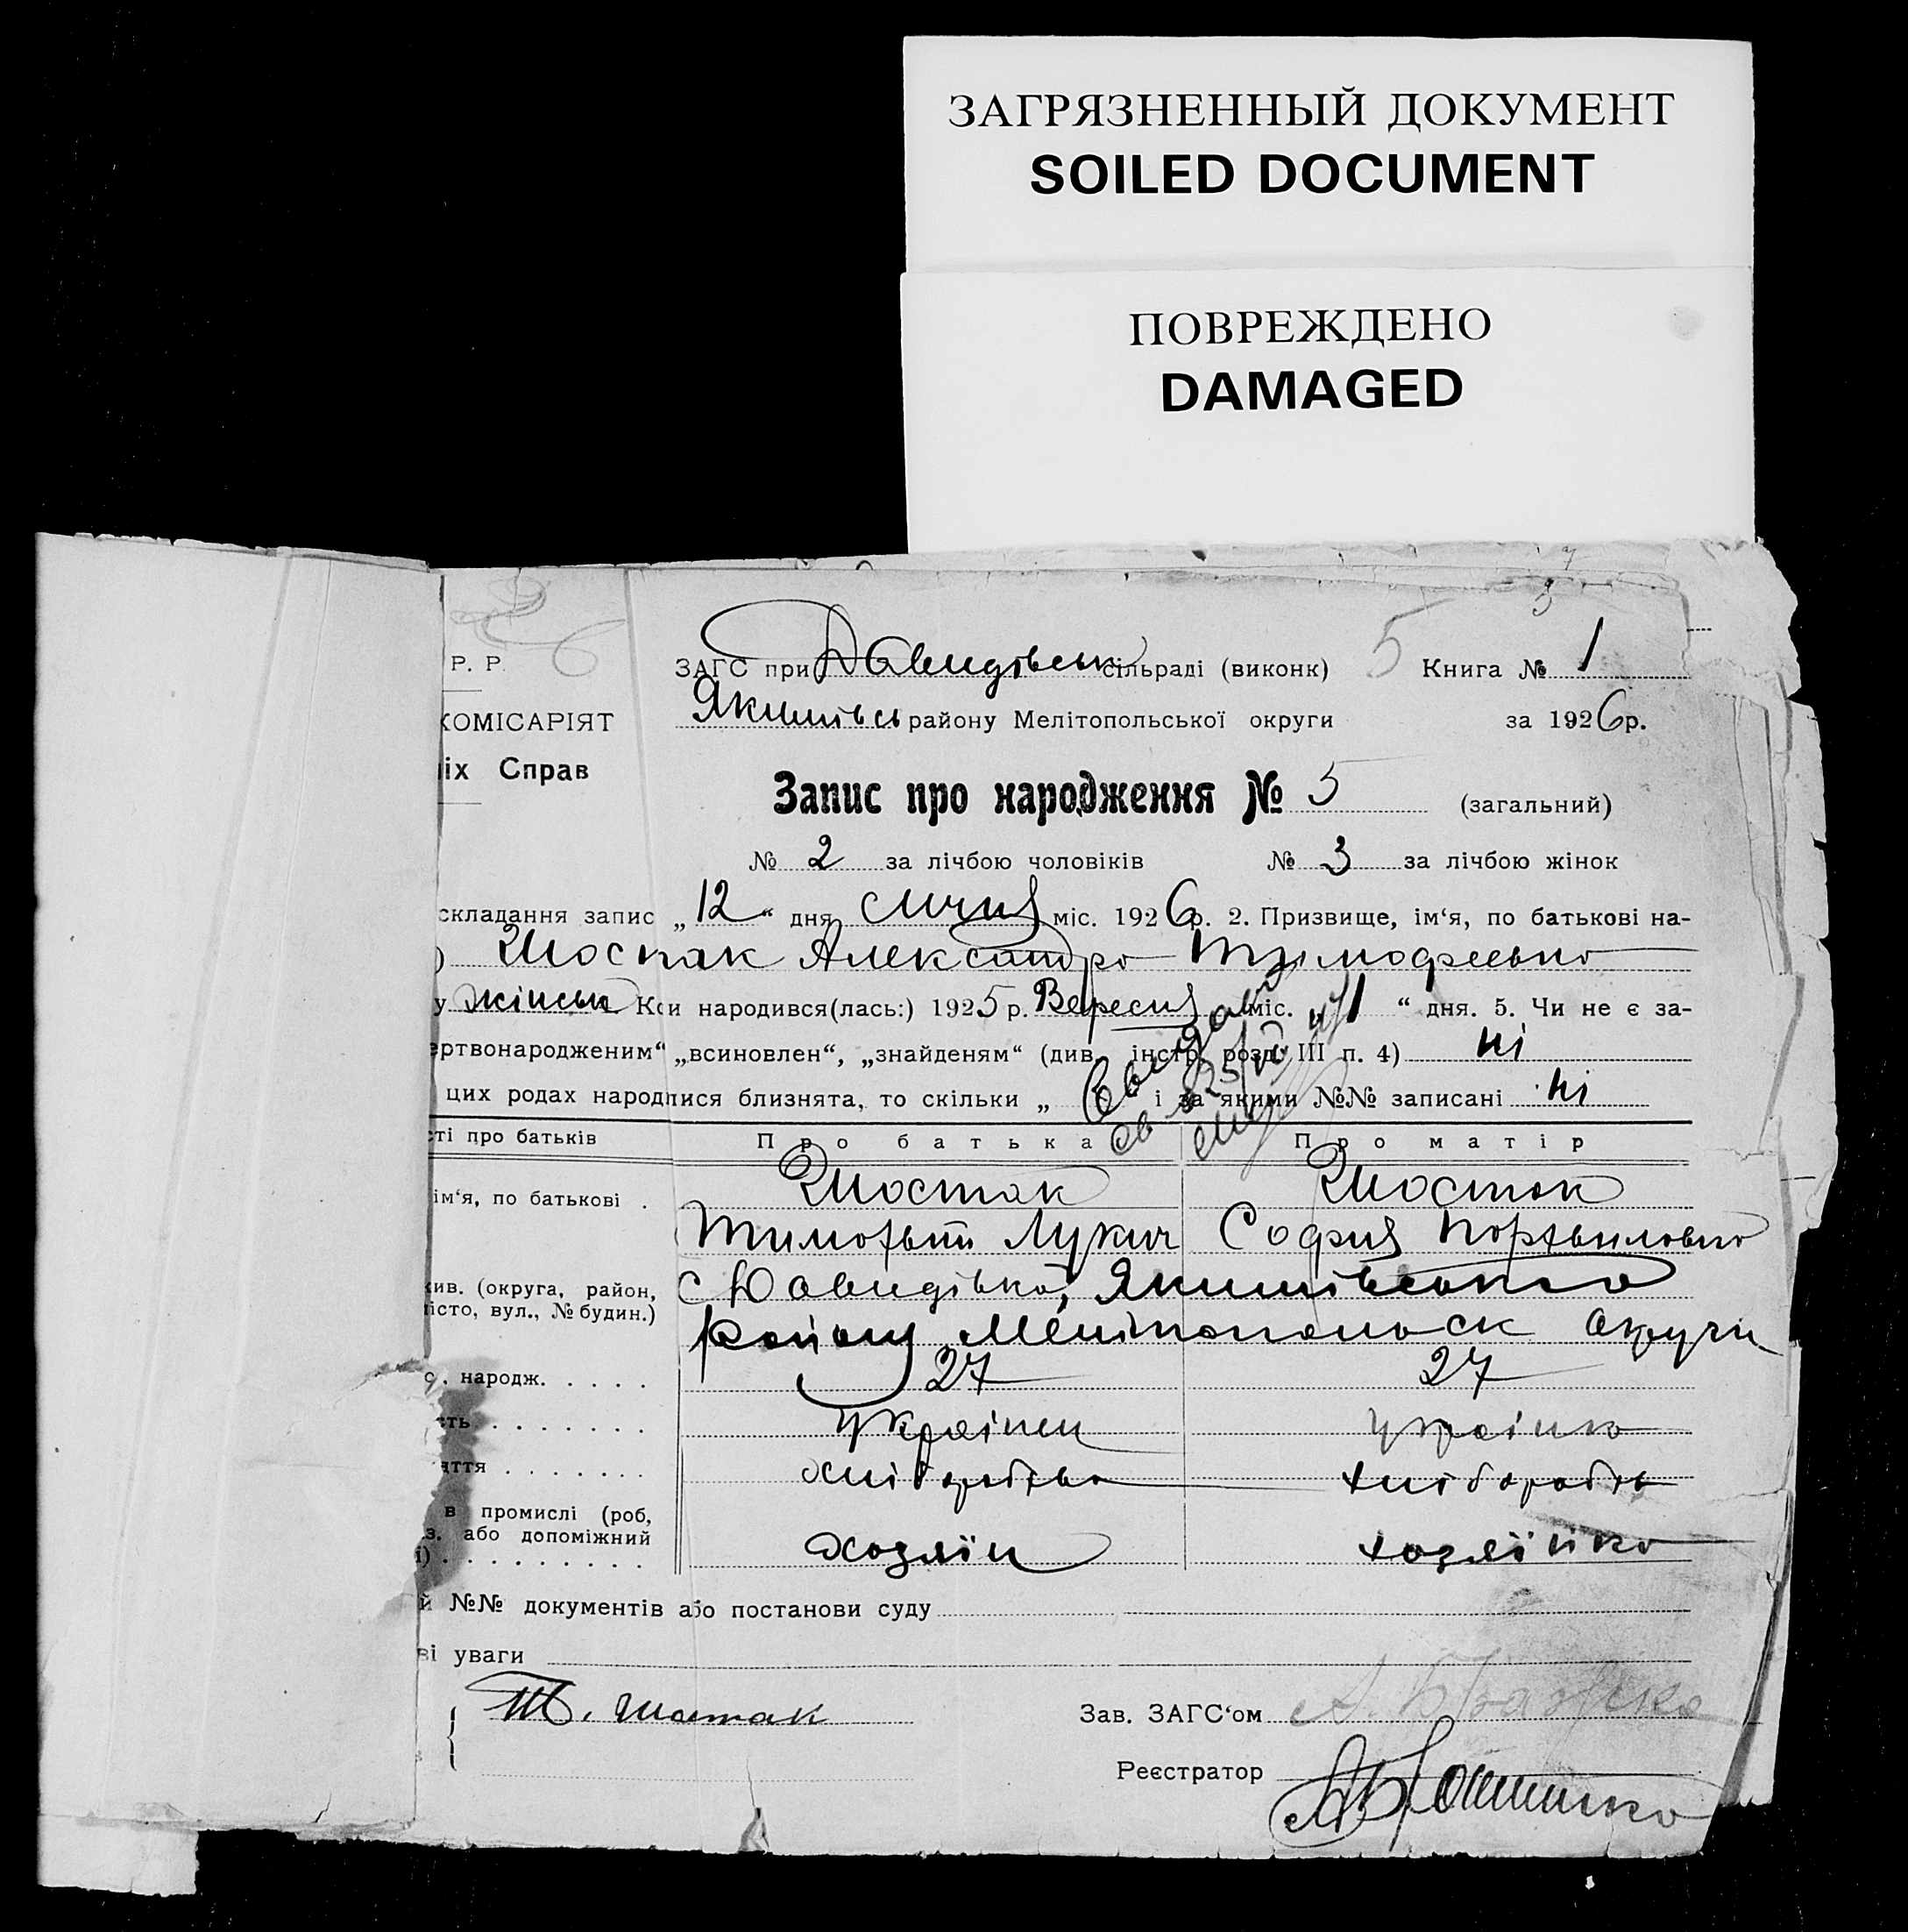 ЗАГРЯЗНЕННЫЙ ДОКУМЕНТ
SOILED DOCUMENT
ПОВРЕЖДЕНО
DAMAGED
Р. Р.
ЗАГС при Давидівськ сільраді (виконк) 5 Книга № 1
КОМІСАРІЯТ
Якимівсь району Мелітопольської округи за 1926 р.
іх Справ
Запис про народження № 5 (загальний)
№ 2 за лічбою чоловіків № 3 за лічбою жінок
складання запис „ 12 “ дня січня міс. 1926 р. 2. Призвище, ім‘я, по батькові на-
) Шостак Александра Тимофеевна
у жіноча Коли народився(лась:) 1925 р. Вересня міс. „ 1 “ дня. 5. Чи не є за-
ертвонародженим“ „всиновлен“, „знайденям“ (див. інстр. розд. III п. 4) ні
цих родах народилися близнята, то скільки „ і за якими №№ записані ні
ті про батьків Про батька Про матір
ім‘я, по батькові . Шостак Шостак
Лукич София
ив. (округа, район, с Давидівка, Якимівського
істо, вул., № будин.) району Мелітопольск округи
народж. . . . . 27 27
сть . . . . . . . Українец українка
яття . . . . . . . хліборобство
в промислі (роб,
з. або допоміжний
і) . . . . . . . . . . Хозяїн хозяйка
й №№ документів або постанови суду
ві уваги
Т. Шостак
Зав. ЗАГС‘ом
Реєстратор